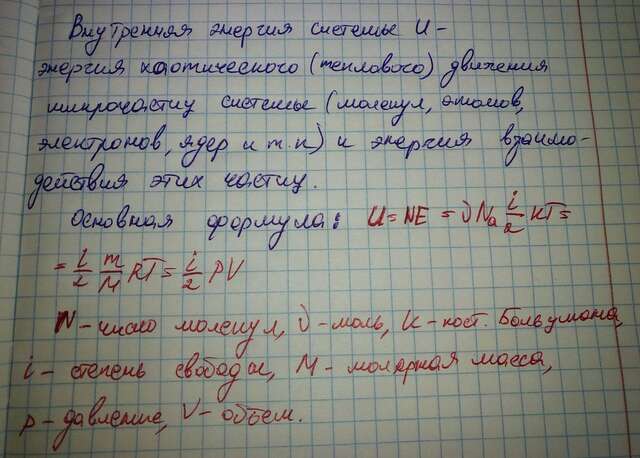 Внутренняя энергия системы U -
энергия хаотического (теплового) движения
микрочастиц системы (молекул, атомов,
электронов, ядер и т.п) и энергия взаимо-
действия этих частиц.
Основная формула: U = NE = νNa i/2 кТ =
= i/2 m/M RT = i/2 PV
N - число молекул, ν - моль, К - пост. Больцмана,
i - степень свободы, M - молярная масса,
р - давление, V - объем.